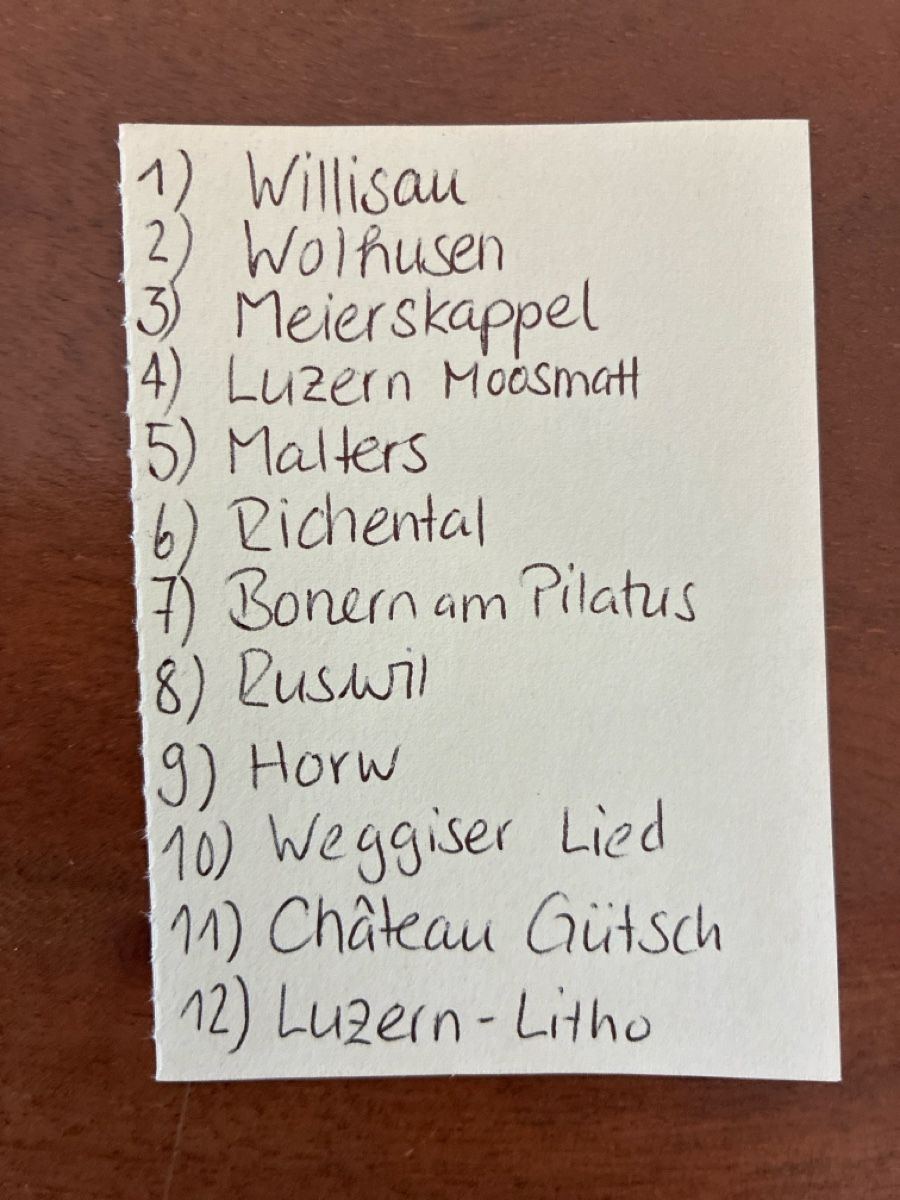 1) Willisau
2) Wolhusen
3) Meierskappel
4) Luzern Moosmatt
5) Malters
6) Richental
7) Bonern am Pilatus
8) Ruswil
9) Horw
10) Weggiser Lied
11) Château Gütsch
12) Luzern-Litho